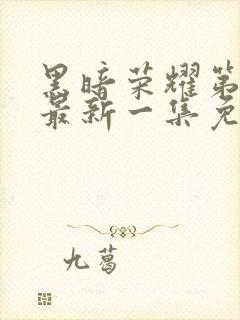 黑暗荣耀第
最新一集免
九葛